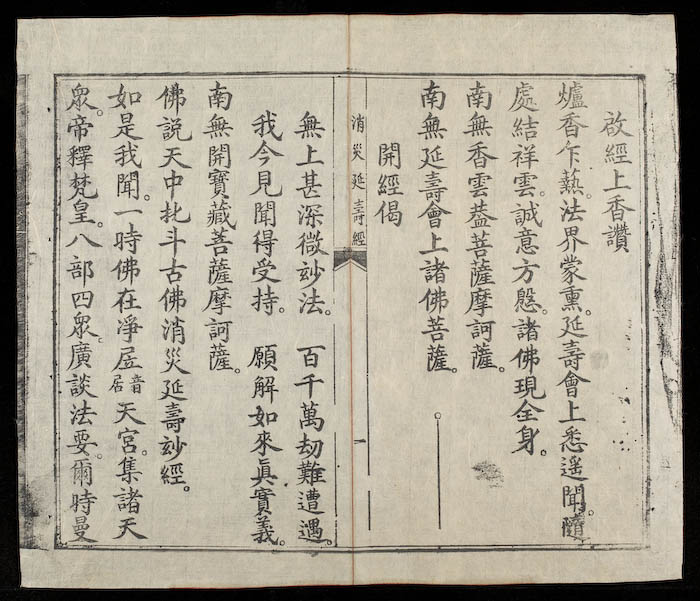 啟經上香讚
爐香乍爇。法界蒙熏。延壽會上悉遥聞。隨
處結祥雲。誠意方慇。諸佛現全身。
南無香雲蓋菩薩摩訶薩。
南無延壽會上諸佛菩薩。
開經偈
消災延壽經
一
無上甚深微妙法。 百千萬劫難遭遇。
我今見聞得受持。 願解如來眞實義。
南無開寶藏菩薩摩訶薩。
佛説天中北斗古佛消災延壽妙經。
如是我聞。一時佛在淨㞐音居天宮。集諸天
眾。帝釋梵皇。八部四眾。廣談法要。爾時曼